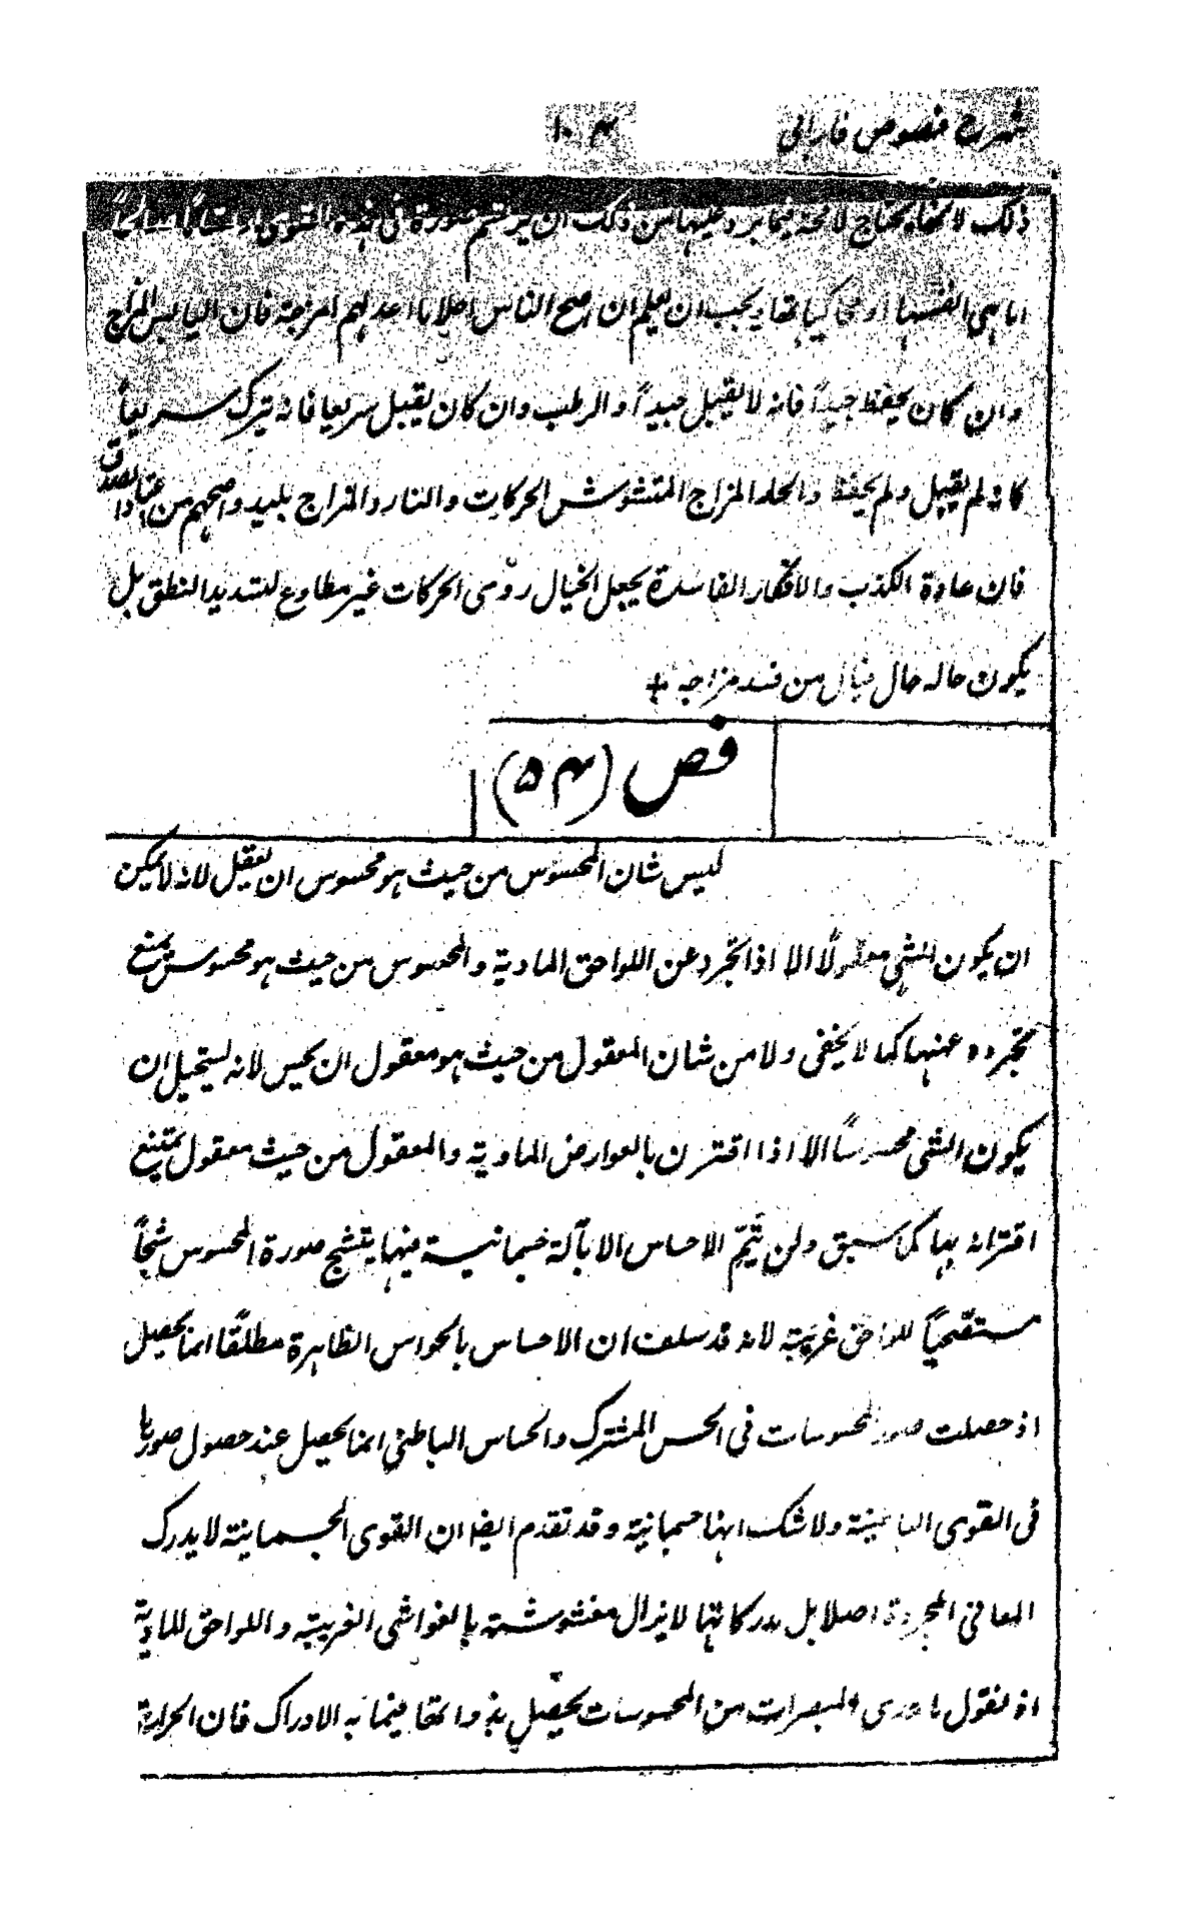 شرح فصوص فارابى
١٠٤
ذلك لانها يحتاج لامحة فيما يرد عليها من ذلك ان يرتسم صورة فى هذه القوى
اما هى انفسها او محاكياتها ويجب ان يعلم ان اصح الناس احلاما اعدلهم امزجة فان اليابس المزاج
وان كان يحفظ جيداً فانه لا يقبل جيداً والرطب وان كان يقبل سريعا فانه يترك سريعاً
كانه لم يقبل ولم يحفظ والحار المزاج المتشوش الحركات والبارد المزاج بليد واصحهم من اعتاد الصدق
فان عادة الكذب والافكار الفاسدة يجعل الخيال ردى الحركات غير مطاوع لتسديد النطق بل
يكون حاله حال خيال من فسد مزاجه +
فص (٥٤)
ليس شان المحسوس من حيث هو محسوس ان يعقل لانه لا يمكن
ان يكون الشى معقولًا الا اذا تجرد عن اللواحق المادية والمحسوس من حيث هو محسوس يمتنع
تجرده عنها كما لا يخفى ولا من شان المعقول من حيث هو معقول ان يحس لانه يستحيل ان
يكون الشى محسوسًا الا اذا اقترن بالعوارض المادية والمعقول من حيث معقول يمتنع
اقترانه بها كما سبق ولن يتمّ الاحساس الا بآلة جسمانية فيها يتشبح صورة المحسوس شبحًا
مستصحبًا للواحق غريبة لانه قد سلف ان الاحساس بالحواس الظاهرة مطلقًا انما يحصل
اذ حصلت صور المحسوسات فى الحس المشترك والحساس الباطنى انما يحصل عند حصول صورها
فى القوى الباطنية ولا شك انها جسمانية وقد تقدم ايضا ان القوى الجسمانية لا يدرك
المعانى المجردة اصلا بل مدركاتها لا يزال مغشوشة بالغواشى الغريبة واللواحق المادية
اذ نقول ما سوى المبصرات من المحسوسات يحصل بذواتها فيما به الادراك فان الحرارة